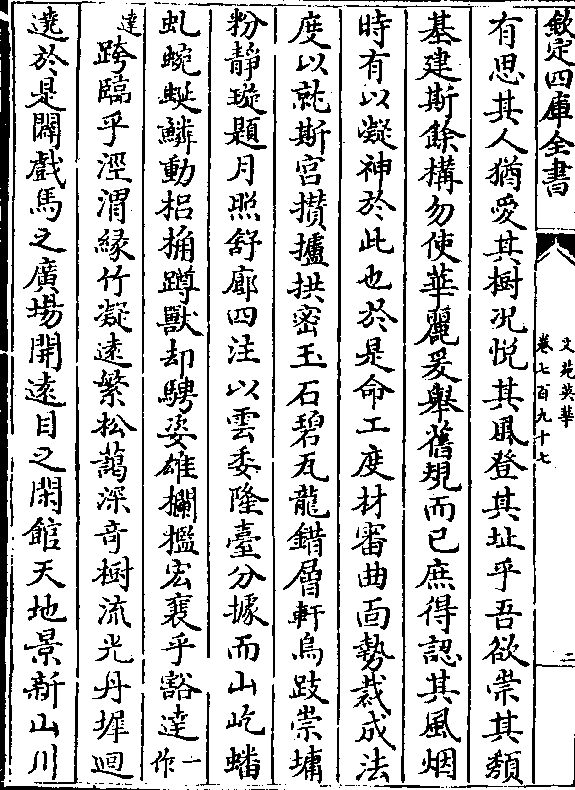 欽定四庫全書
文苑英華
卷七百九十七
二
有思其人猶愛其樹况悦其風登其址乎吾欲崇其頽
基建斯餘構勿使華麗爰舉舊規而已庶得認其風烟
時有以凝神於此也於是命工度材審曲面勢裁成法
度以就斯宫攢攎拱密玉石碧瓦龍錯層軒鳥跂崇墉
粉靜璇題月照舒廊四注以雲委隆臺分據而山屹蟠
虬蜿蜒鱗動栢桷蹲獸却騁姿雄欄檻宏襄乎豁達一作
逹跨臨乎涇渭緑竹凝遠繁松藹深奇樹流光丹墀迴
遶於是闢戲馬之廣場開遠目之閑館天地景新山川